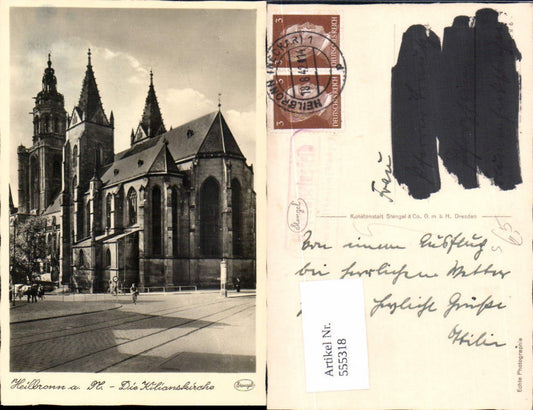 Heilbronn a. N. - Die Kilianskirche
Stengel
3
3
DEUTSCHES REICH
HEILBRONN (NECKAR) 1
18.8.42
Frau
Stengel
Kunstanstalt Stengel & Co. G. m. b. H., Dresden
Von einem Ausflug
bei herrlichem Wetter
herzliche Grüße
Artikel Nr.
555318
Echte Photographie